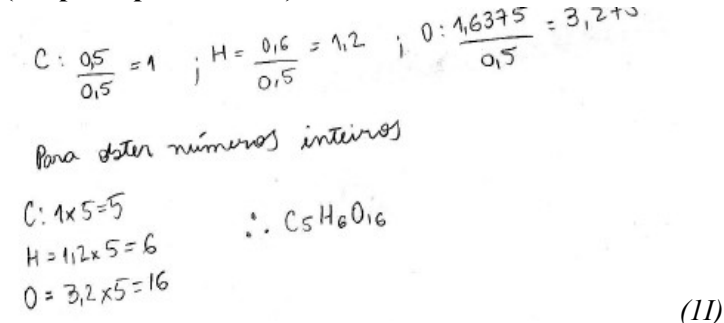 C: 0,5/0,5 = 1 ; H = 0,6/0,5 = 1,2 ; O: 1,6375/0,5 = 3,2
Para obter números inteiros
C: 1x5=5
H=1,2x5=6
O=3,2x5=16
∴ C5H6O16
(1I)